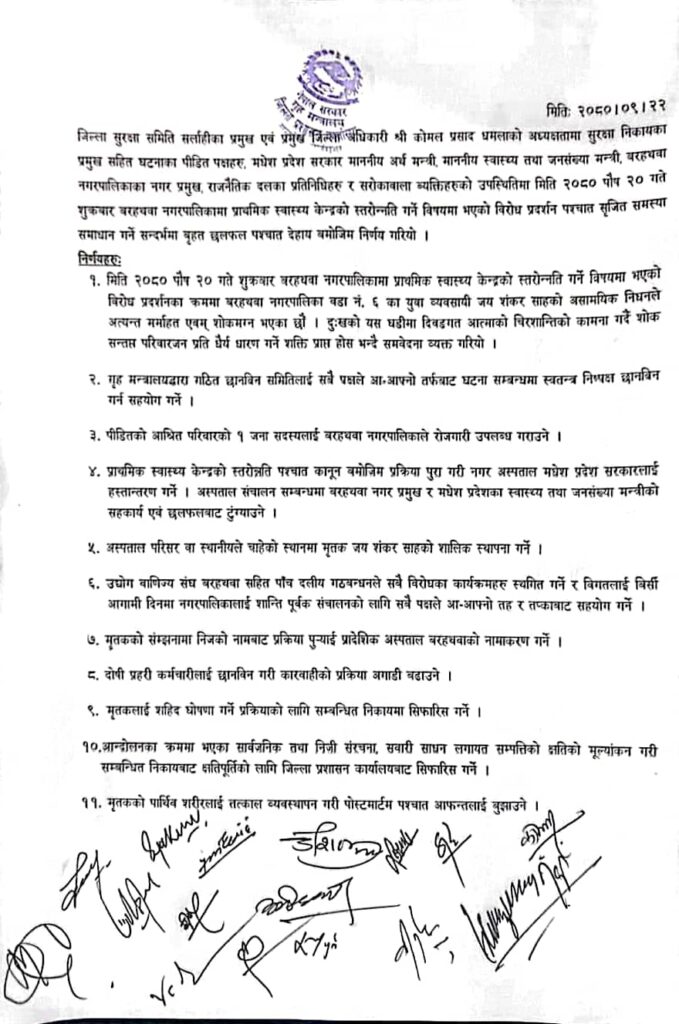 नेपाल सरकार
गृह मन्त्रालय
मितिः २०८०।०९।२२
जिल्ला सुरक्षा समिति सर्लाहीका प्रमुख एवं प्रमुख जिल्ला अधिकारी श्री कोमल प्रसाद धमलाको अध्यक्षतामा सुरक्षा निकायका
प्रमुख सहित घटनाका पीडित पक्षहरु, मधेश प्रदेश सरकार माननीय अर्थ मन्त्री, माननीय स्वास्थ्य तथा जनसंख्या मन्त्री, बरहथवा
नगरपालिकाका नगर प्रमुख, राजनैतिक दलका प्रतिनिधिहरु र सरोकावाला ब्यक्तिहरुको उपस्थितिमा मिति २०८० पौष २० गते
शुक्रबार बरहथवा नगरपालिकामा प्राथमिक स्वास्थ्य केन्द्रको स्तरोन्नति गर्ने विषयमा भएको विरोध प्रदर्शन पश्चात सृजित समस्या
समाधान गर्ने सन्दर्भमा बृहत छलफल पश्चात देहाय बमोजिम निर्णय गरियो ।
निर्णयहरुः
१. मिति २०८० पौष २० गते शुक्रबार बरहथवा नगरपालिकामा प्राथमिक स्वास्थ्य केन्द्रको स्तरोन्नति गर्ने विषयमा भएको
विरोध प्रदर्शनका क्रममा बरहथवा नगरपालिका वडा नं. ६ का युवा व्यवसायी जय शंकर साहको असामयिक निधनले
अत्यन्त मर्माहत एवम् शोकमग्न भएका छौं । दुःखको यस घडीमा दिवङगत आत्माको चिरशान्तिको कामना गर्दै शोक
सन्तप्त परिवारजन प्रति धैर्य धारण गर्ने शक्ति प्राप्त होस भन्दै समवेदना व्यक्त गरियो ।
२. गृह मन्त्रालयद्वारा गठित छानबिन समितिलाई सबै पक्षले आ-आफ्नो तर्फबाट घटना सम्बन्धमा स्वतन्त्र निष्पक्ष छानबिन
गर्न सहयोग गर्ने ।
३. पीडितको आश्रित परिवारको १ जना सदस्यलाई बरहथवा नगरपालिकाले रोजगारी उपलब्ध गराउने ।
४. प्राथमिक स्वास्थ्य केन्द्रको स्तरोन्नति पश्चात कानून बमोजिम प्रक्रिया पुरा गरी नगर अस्पताल मधेश प्रदेश सरकारलाई
हस्तान्तरण गर्ने । अस्पताल संचालन सम्बन्धमा बरहथवा नगर प्रमुख र मधेश प्रदेशका स्वास्थ्य तथा जनसंख्या मन्त्रीको
सहकार्य एवं छलफलबाट टुंग्याउने ।
५. अस्पताल परिसर वा स्थानीयले चाहेको स्थानमा मृतक जय शंकर साहको शालिक स्थापना गर्ने ।
६. उद्योग वाणिज्य संघ बरहथवा सहित पाँच दलीय गठबन्धनले सबै विरोधका कार्यक्रमहरु स्थगित गर्ने र विगतलाई बिर्सी
आगामी दिनमा नगरपालिकालाई शान्ति पूर्वक संचालनको लागि सबै पक्षले आ-आफ्नो तह र तप्काबाट सहयोग गर्ने ।
७. मृतकको संम्झनामा निजको नामबाट प्रक्रिया पुऱ्याई प्रादेशिक अस्पताल बरहथवाको नामाकरण गर्ने ।
८. दोषी प्रहरी कर्मचारीलाई छानबिन गरी कारवाहीको प्रक्रिया अगाडी बढाउने ।
९. मृतकलाई शहिद घोषणा गर्ने प्रक्रियाको लागि सम्बन्धित निकायमा सिफारिस गर्ने ।
१०.आन्दोलनका क्रममा भएका सार्वजनिक तथा निजी संरचना, सवारी साधन लगायत सम्पत्तिको क्षतिको मूल्यांकन गरी
सम्बन्धित निकायबाट क्षतिपूर्तिको लागि जिल्ला प्रशासन कार्यालयबाट सिफारिस गर्ने ।
११. मृतकको पार्थिव शरीरलाई तत्काल व्यवस्थापन गरी पोस्टमार्टम पश्चात आफन्तलाई बुझाउने ।